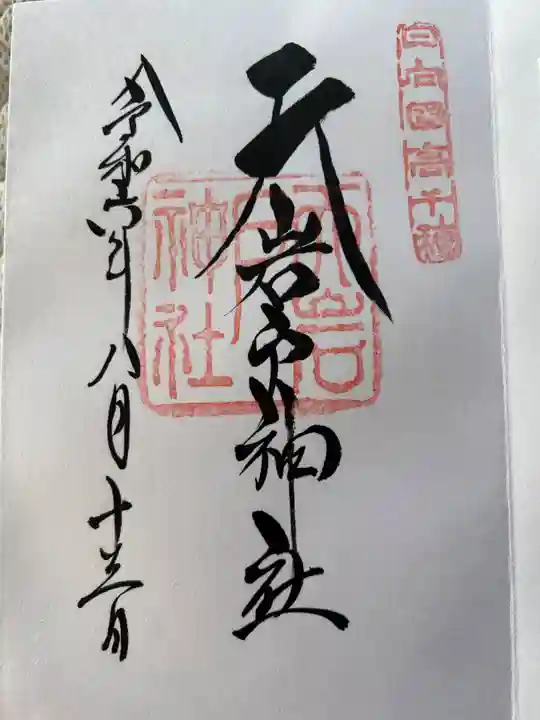 日向国高千穂
天岩戸神社
天岩戸神社
令和六年八月十三日